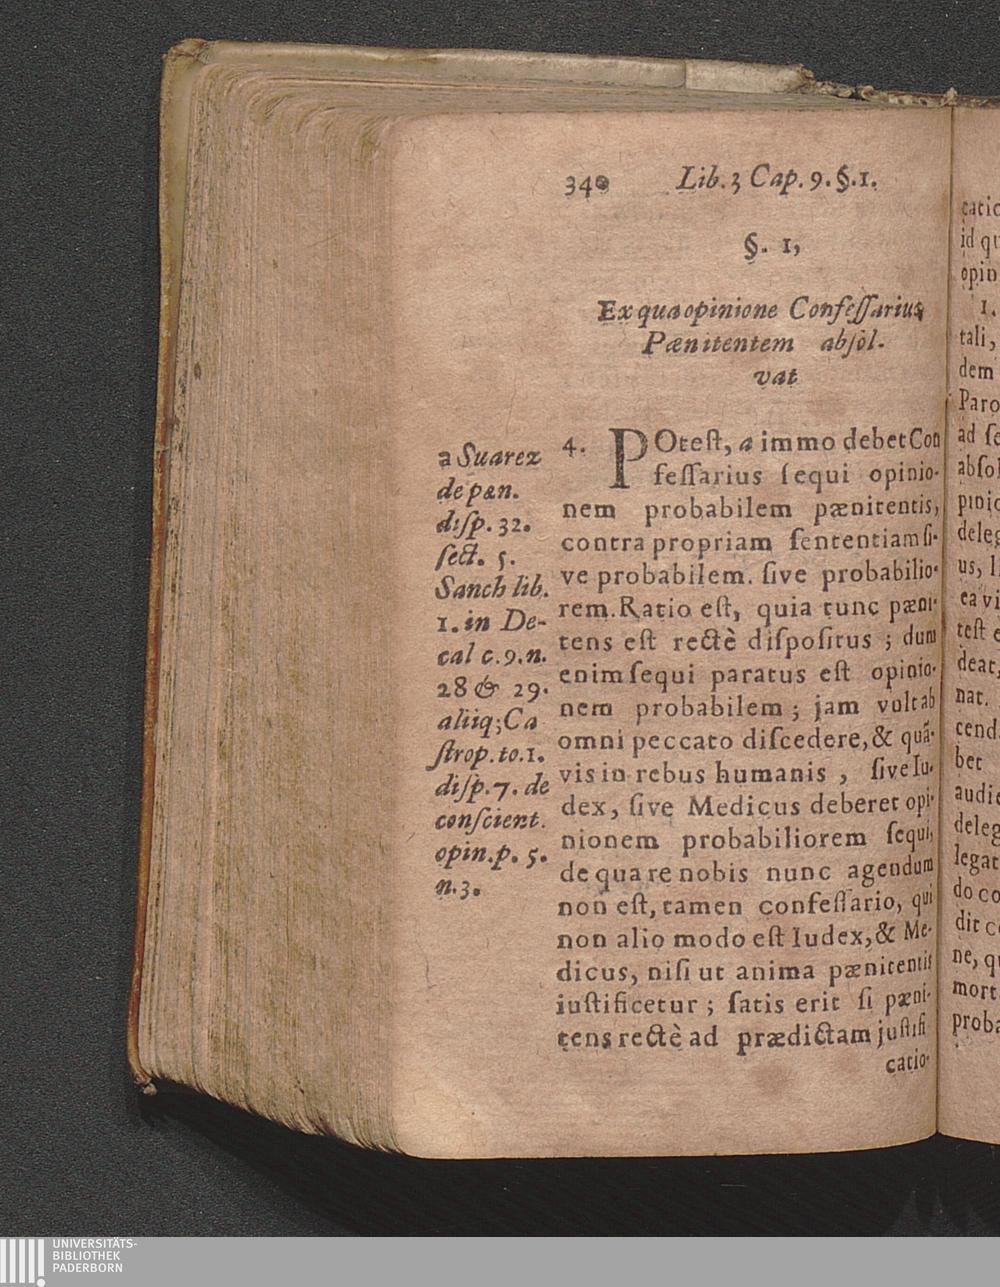 340 Lib. 3 Cap. 9. §. 1.
§. 1,
Ex qua opinione Confeſſarius
Pænitentem abſol-
vat
a Suarez
de pæn.
diſp. 32.
ſect. 5.
Sanch lib.
1. in De-
cal c. 9. n.
28 & 29.
aliiq; Ca
ſtrop. to. 1.
diſp. 7. de
conſcient.
opin. p. 5.
n. 3.
4. POteſt, a immo debet Con
feſſarius ſequi opinio-
nem probabilem pænitentis,
contra propriam ſententiam ſi-
ve probabilem. ſive probabilio-
rem. Ratio eſt, quia tunc pæni-
tens eſt rectè diſpoſitus ; dum
enim ſequi paratus eſt opinio-
nem probabilem ; jam vult ab
omni peccato diſcedere, & quã-
vis in rebus humanis , ſive Iu-
dex, ſive Medicus deberet opi-
nionem probabiliorem ſequi,
de qua re nobis nunc agendum
non eſt, tamen confeſſario, qui
non alio modo eſt Iudex, & Me-
dicus, niſi ut anima pænitentis
iuſtificetur ; ſatis erit ſi pæni-
tens rectè ad prædictam juſtifi
catio-
catio
id qu
opin
1.
tali,
dem
Paro
ad ſe
abſol
pinio
deleg
us, l
ea vi
teſt e
deat,
nat.
cend
bet
audie
deleg
legat
do co
dit c
ne, qu
mort
proba
UNIVERSITÄTS-
BIBLIOTHEK
PADERBORN